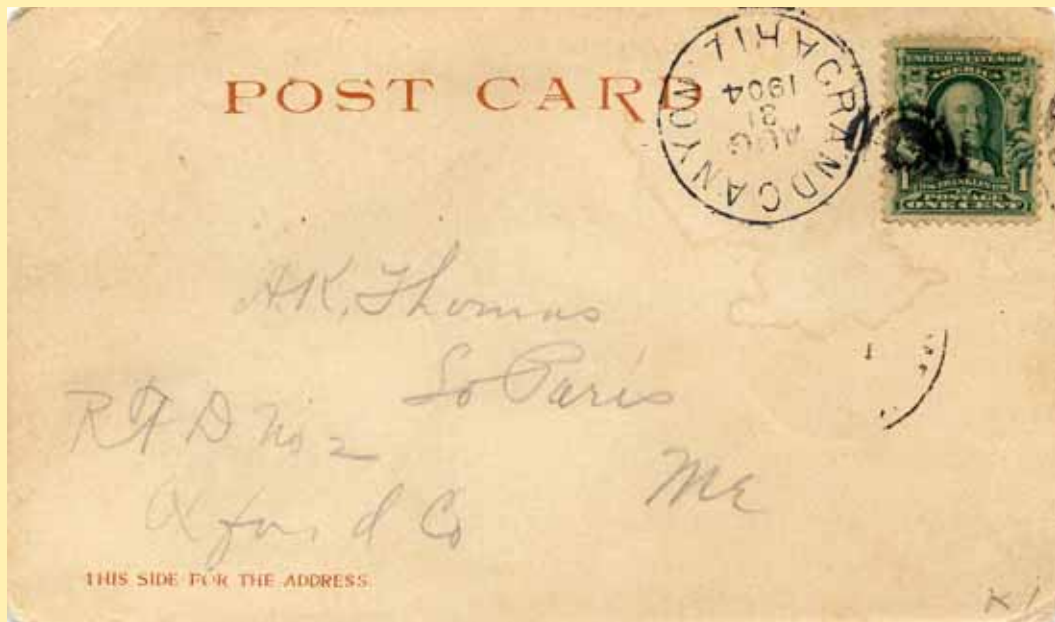 POST CARD
GRAND CANYON
AUG
1904
UNITED STATES OF
AMERICA
1 FRANKLIN 1
POSTAGE
ONE CENT
A.K. Thomas
So Paris
R F D No 2
Me
Oxford Co
THIS SIDE FOR THE ADDRESS.
K1